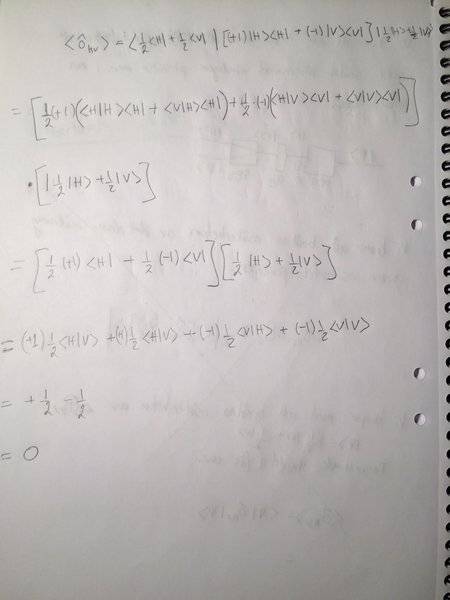 <Ô_HV> = <½<H| + ½<V| | [(+1)|H><H| + (-1)|V><V|] | ½|H> + ½|V>
= [½(+1)(<H|H><H| + <V|H><H|) + ½(-1)(<H|V><V| + <V|V><V|)]
• [|½|H> + ½|V>]
= [½(+1)<H| + ½(-1)<V|][½|H> + ½|V>]
= (+1)½<H|V> + (+1)½<H|V> + (-1)½<V|H> + (-1)½<V|V>
= +½ - ½
= 0